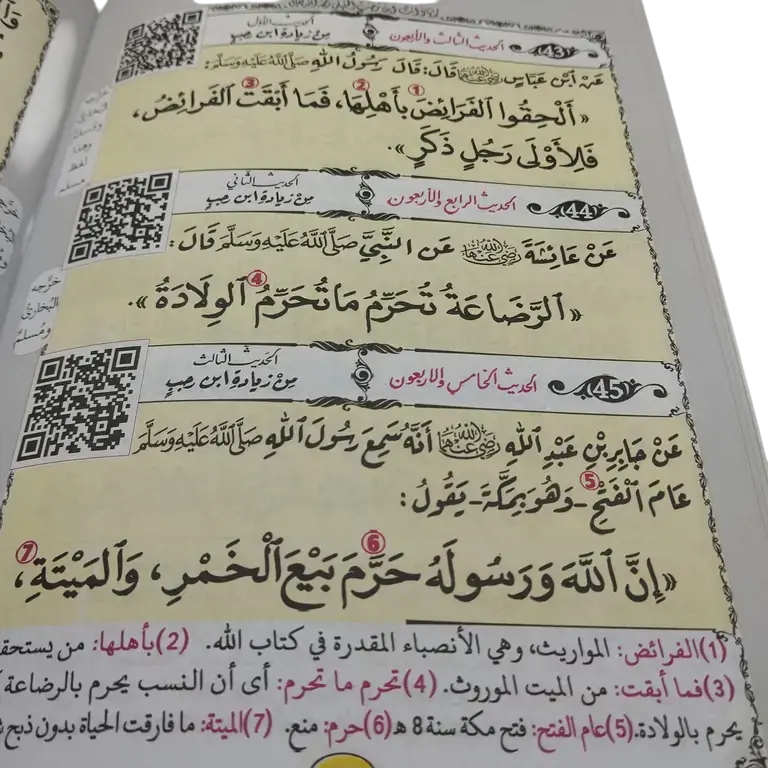 (43) الحديث الثالث والأربعون الحديث الأول من زيادة ابن رجب
عَنِ ابْنِ عَبَّاسٍ رضي الله عنهما قَالَ: قَالَ رَسُولُ اللهِ صَلَّى اللَّهُ عَلَيْهِ وَسَلَّمَ:
«أَلْحِقُوا الفَرَائِضَ(1) بِأَهْلِهَا(2)، فَمَا أَبْقَتِ(3) الفَرَائِضُ،
فَلِأَوْلَى رَجُلٍ ذَكَرٍ».
(44) الحديث الرابع والأربعون الحديث الثاني من زيادة ابن رجب
عَنْ عَائِشَةَ رضي الله عنها عَنِ النَّبِيِّ صَلَّى اللَّهُ عَلَيْهِ وَسَلَّمَ قَالَ:
«الرَّضَاعَةُ تُحَرِّمُ مَا تُحَرِّمُ(4) الوِلَادَةُ».
خرَّجه
البُخاريُّ
ومُسلمٌ
(45) الحديث الخامس والأربعون الحديث الثالث من زيادة ابن رجب
عَنْ جَابِرِ بْنِ عَبْدِ اللهِ رضي الله عنهما أَنَّهُ سَمِعَ رَسُولَ اللهِ صَلَّى اللَّهُ عَلَيْهِ وَسَلَّمَ
عَامَ الْفَتْحِ(5) - وَهُوَ بِمَكَّةَ - يَقُولُ:
«إِنَّ اللَّهَ وَرَسُولَهُ حَرَّمَ(6) بَيْعَ الْخَمْرِ، وَالمَيْتَةِ(7)،
(1) الفرائض: المواريث، وهي الأنصباء المقدرة في كتاب الله. (2) بأهلها: من
(3) فما أبقت: من الميت الموروث. (4) تحرم ما تحرم: أى أن النسب يحرم بالرضاعة
يحرم بالولادة. (5) عام الفتح: فتح مكة سنة 8 هـ (6) حرم: منع. (7) الميتة: ما فارقت الحياة بدون ذبح